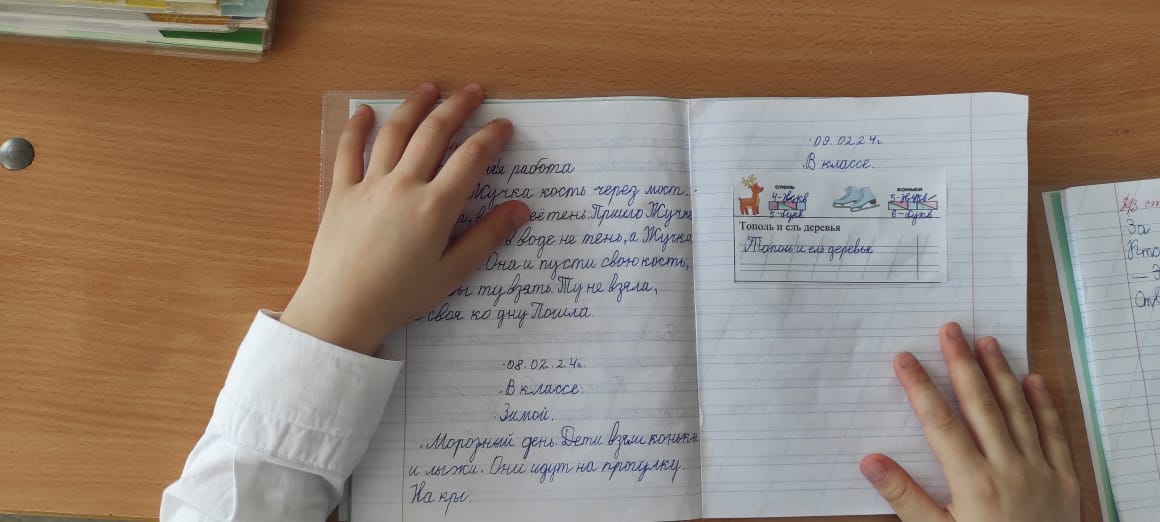 работа
Жучка кость через мост.
её тень. Пришло Жучке
в воде не тень, а Жучка
Она и пусти свою кость,
ту взять. Ту не взяла,
своя ко дну Пошла.
08.02.24г.
В классе.
Зимой.
Морозный день. Дети взяли коньки
и лыжи. Они идут на прогулку.
На кры.
09.02.24г.
В классе.
олень коньки
4-звукв 5-звукв
5-букв 6-букв
Тополь и ель деревья
Тополь и ель деревья
За
Кто